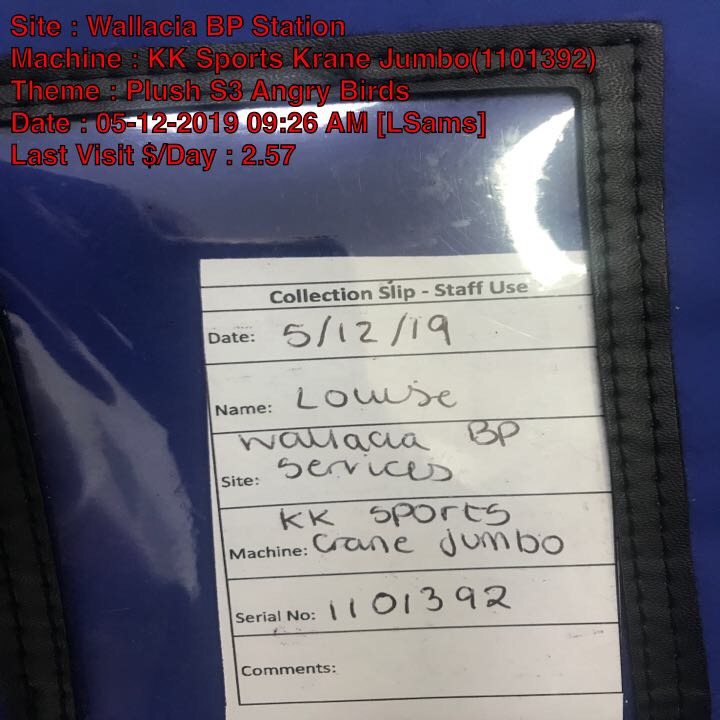 Site : Wallacia BP Station
Machine : KK Sports Krane Jumbo(1101392)
Theme : Plush S3 Angry Birds
Date : 05-12-2019 09:26 AM [LSams]
Last Visit $/Day : 2.57
Collection Slip - Staff Use
Date: 5/12/19
Name: Louise
Wallacia BP
Site: Services
KK Sports
Machine: Crane Jumbo
Serial No: 1101392
Comments: